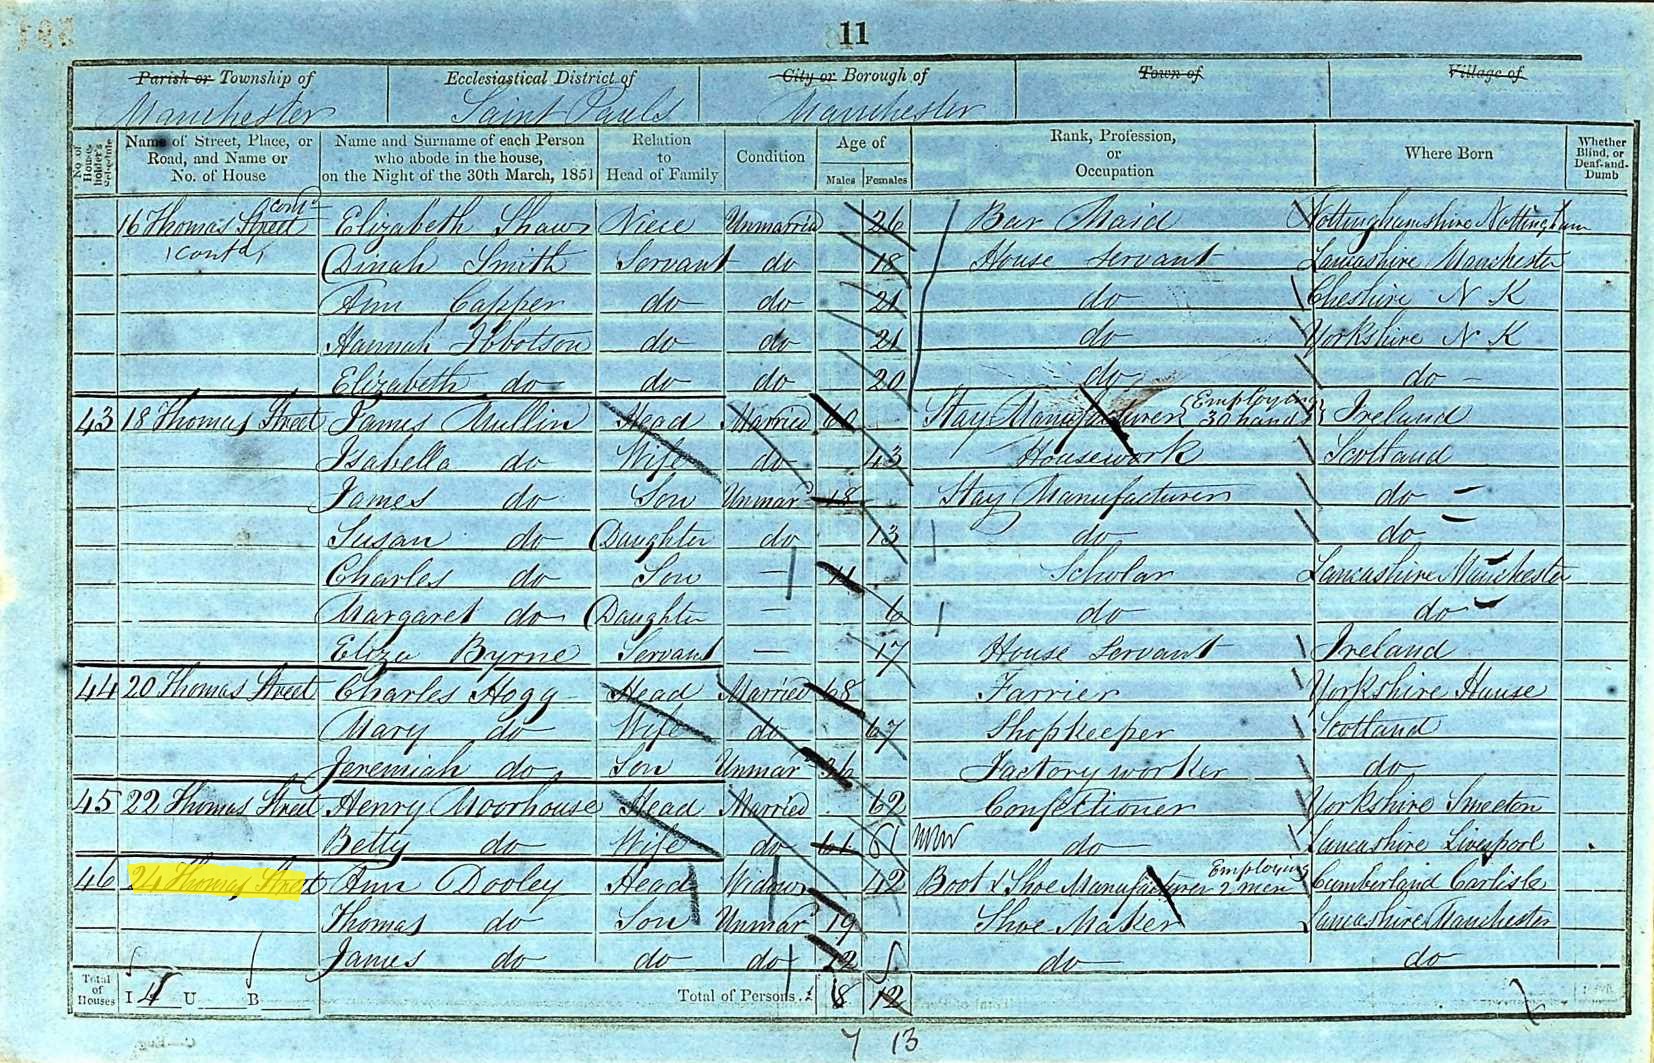 11
Parish or Township of Ecclesiastical District of City or Borough of Town of Village of
Manchester Saint Pauls Manchester
No. of House-holder's Schedule Name of Street, Place, or Road, and Name or No. of House Name and Surname of each Person who abode in the house, on the Night of the 30th March, 1851 Relation to Head of Family Condition Age of Males Females Rank, Profession, or Occupation Where Born Whether Blind, or Deaf-and-Dumb
16 Thomas Street cont Elizabeth Shaw Niece Unmarried 26 Bar Maid Nottinghamshire Nottingham
(contd) Dinah Smith Servant do 18 House Servant Lancashire Manchester
Ann Capper do do 21 do Cheshire N K
Hannah Ibbotson do do 21 do Yorkshire N K
Elizabeth do do do 20 do do
43 18 Thomas Street James Mullin Head Married 60 Stay Manufacturer (Employing 30 hands) Ireland
Isabella do Wife do 43 Housework Scotland
James do Son Unmar 18 Stay Manufacturer do
Susan do Daughter do 13 do do
Charles do Son — 11 Scholar Lancashire Manchester
Margaret do Daughter — 6 do do
Eliza Byrne Servant — 17 House Servant Ireland
44 20 Thomas Street Charles Hogg Head Married 68 Farrier Yorkshire
Mary do Wife do 67 Shopkeeper Scotland
Jeremiah do Son Unmar 36 Factory worker do
45 22 Thomas Street Henry Moorhouse Head Married 62 Confectioner Yorkshire Smeeton
Betty do Wife do 61 61 do Lancashire Liverpool
46 24 Thomas Street Ann Dooley Head Widow 42 Boot & Shoe Manufacturer Employing 2 men Cumberland Carlisle
Thomas do Son Unmar 19 Shoe Maker Lancashire Manchester
James do do do 12 do do
Total of Houses I 4 U B Total of Persons 8 12
7 13